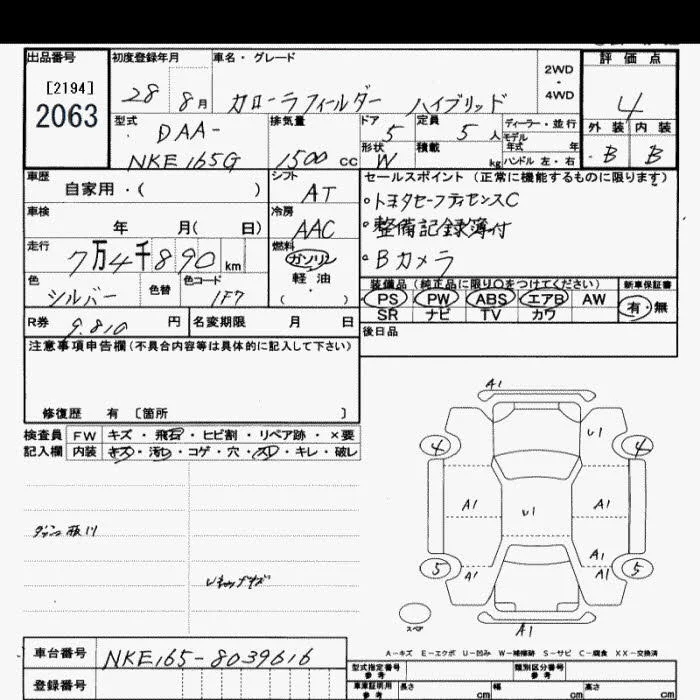 出品番号 初度登録年月 車名・グレード 評価点
[2194]
2063
28 8月 カローラフィールダー ハイブリッド
2WD・4WD
4
外装 内装
B B
型式 排気量 ドア 定員 ディーラー・並行
DAA- 5 5人 モデル年式 年
NKE165G 1500cc 形状 W 積載 kg ハンドル 左・右
車歴 自家用・( ) シフト AT
セールスポイント(正常に機能するものに限ります)
・トヨタセーフティセンスC
車検 年 月( 日) 冷房 AAC
・整備記録簿付
走行 7万4千890km 燃料 ガソリン
軽油
・( )
・Bカメラ
色 シルバー 色替 色コード 1F7
装備品(純正品に限り○をつけてください) 新車保証書
PS PW ABS エアB AW 有・無
SR ナビ TV カワ
R券 9.810円 名変期限 月 日
後日品
注意事項申告欄(不具合内容等は具体的に記入して下さい)
修復歴 有 〔箇所 〕
検査員 FW キズ・飛石・ヒビ割・リペア跡・×要
記入欄 内装 キズ・汚レ・コゲ・穴・スレ・キレ・破レ
A1
U1
4 4
A1 U1 A1
A1
5 A1 A1 5
スペア
A1
A-キズ E-エクボ U-凹み W-補修跡 S-サビ C-腐食 XX-交換済
車台番号 NKE165-8039616
登録番号
型式指定番号 参考 類別区分番号 参考
車庫証明用 参考 長さ cm 幅 cm 高さ cm